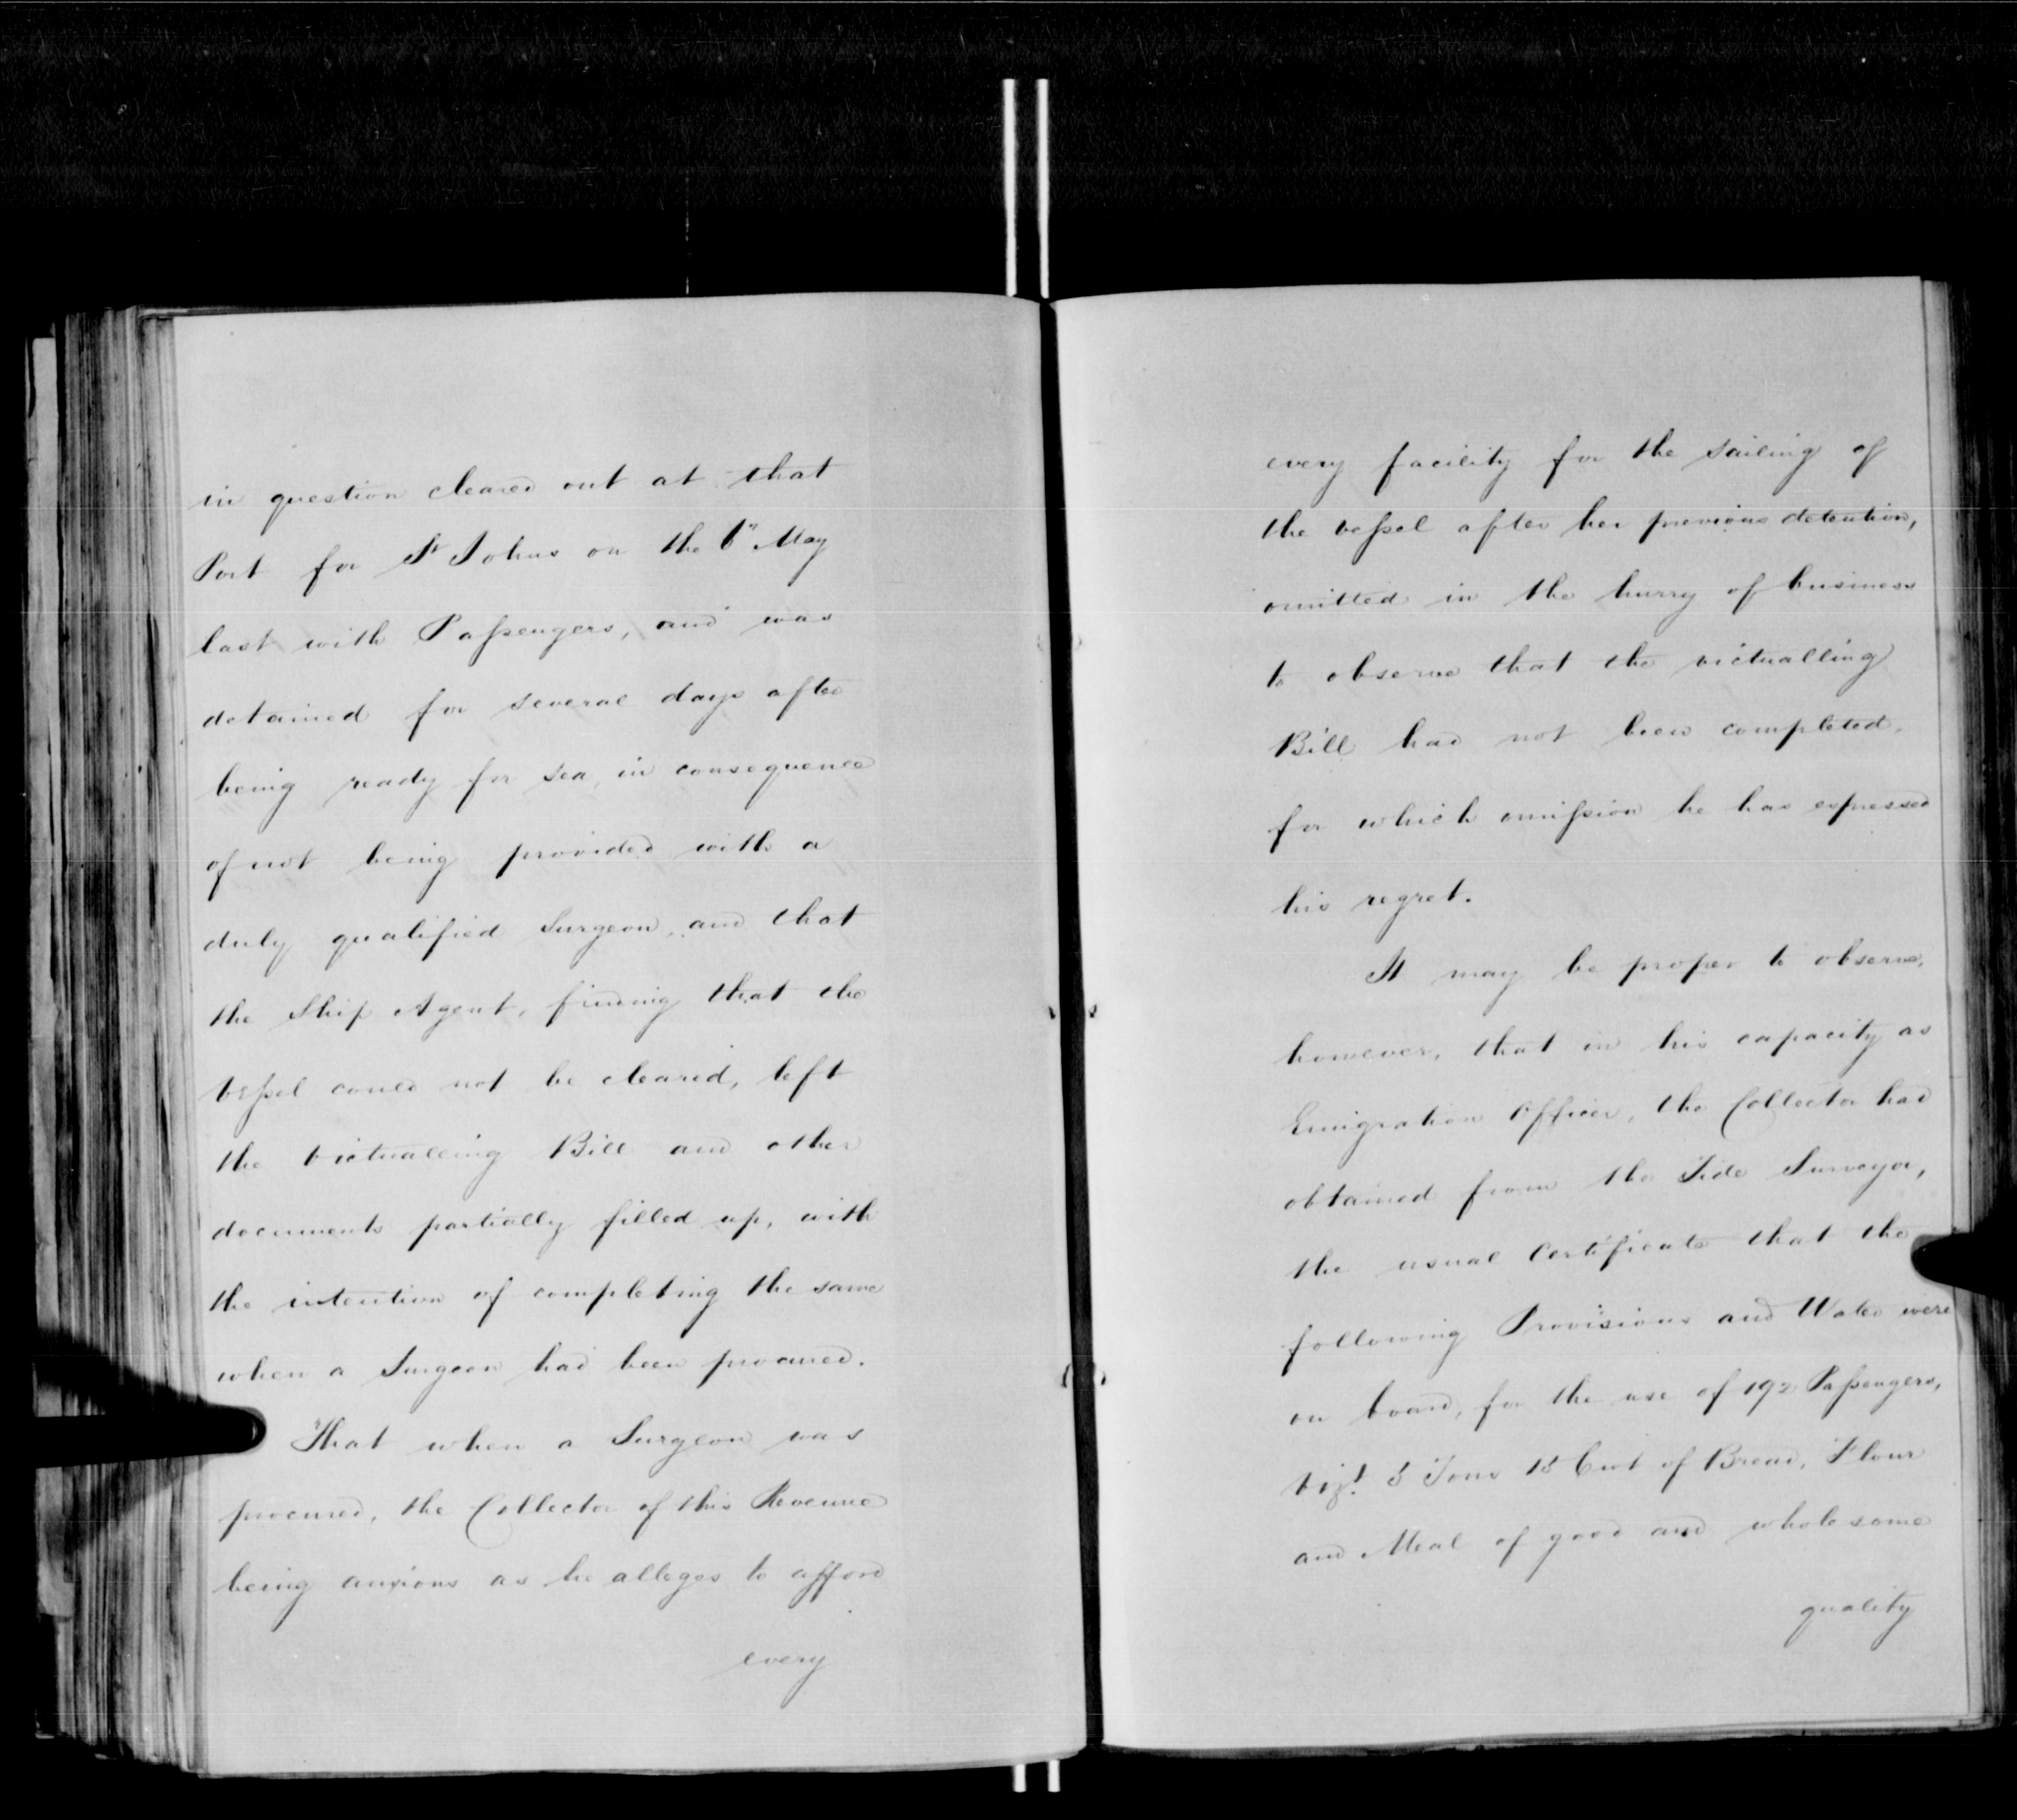 in question cleared out at that
Port for St Johns on the 6" May
last with Passengers, and was
detained for several days after
being ready for sea, in consequence
of not being provided with a
duly qualified Surgeon, and that
the Ship Agent, finding that the
Vessel could not be cleared, left
the Victualling Bill and other
documents partially filled up, with
the intention of completing the same
when a Surgeon had been procured.
"That when a Surgeon was
procured, the Collector of this Revenue
being anxious as he alleges to afford
every
every facility for the sailing of
the Vessel after her previous detention,
omitted in the hurry of business
to observe that the victualling
Bill had not been completed,
for which omission he has expressed
his regret.
It may be proper to observe,
however, that in his capacity as
Emigration Officer, the Collector had
obtained from the Tide Surveyor,
the usual Certificate that the
following Provisions and Water were
on board, for the use of 192 Passengers,
Vizt. 5 Tons 15 Cwt of Bread, Flour
and Meal of good and wholesome
quality